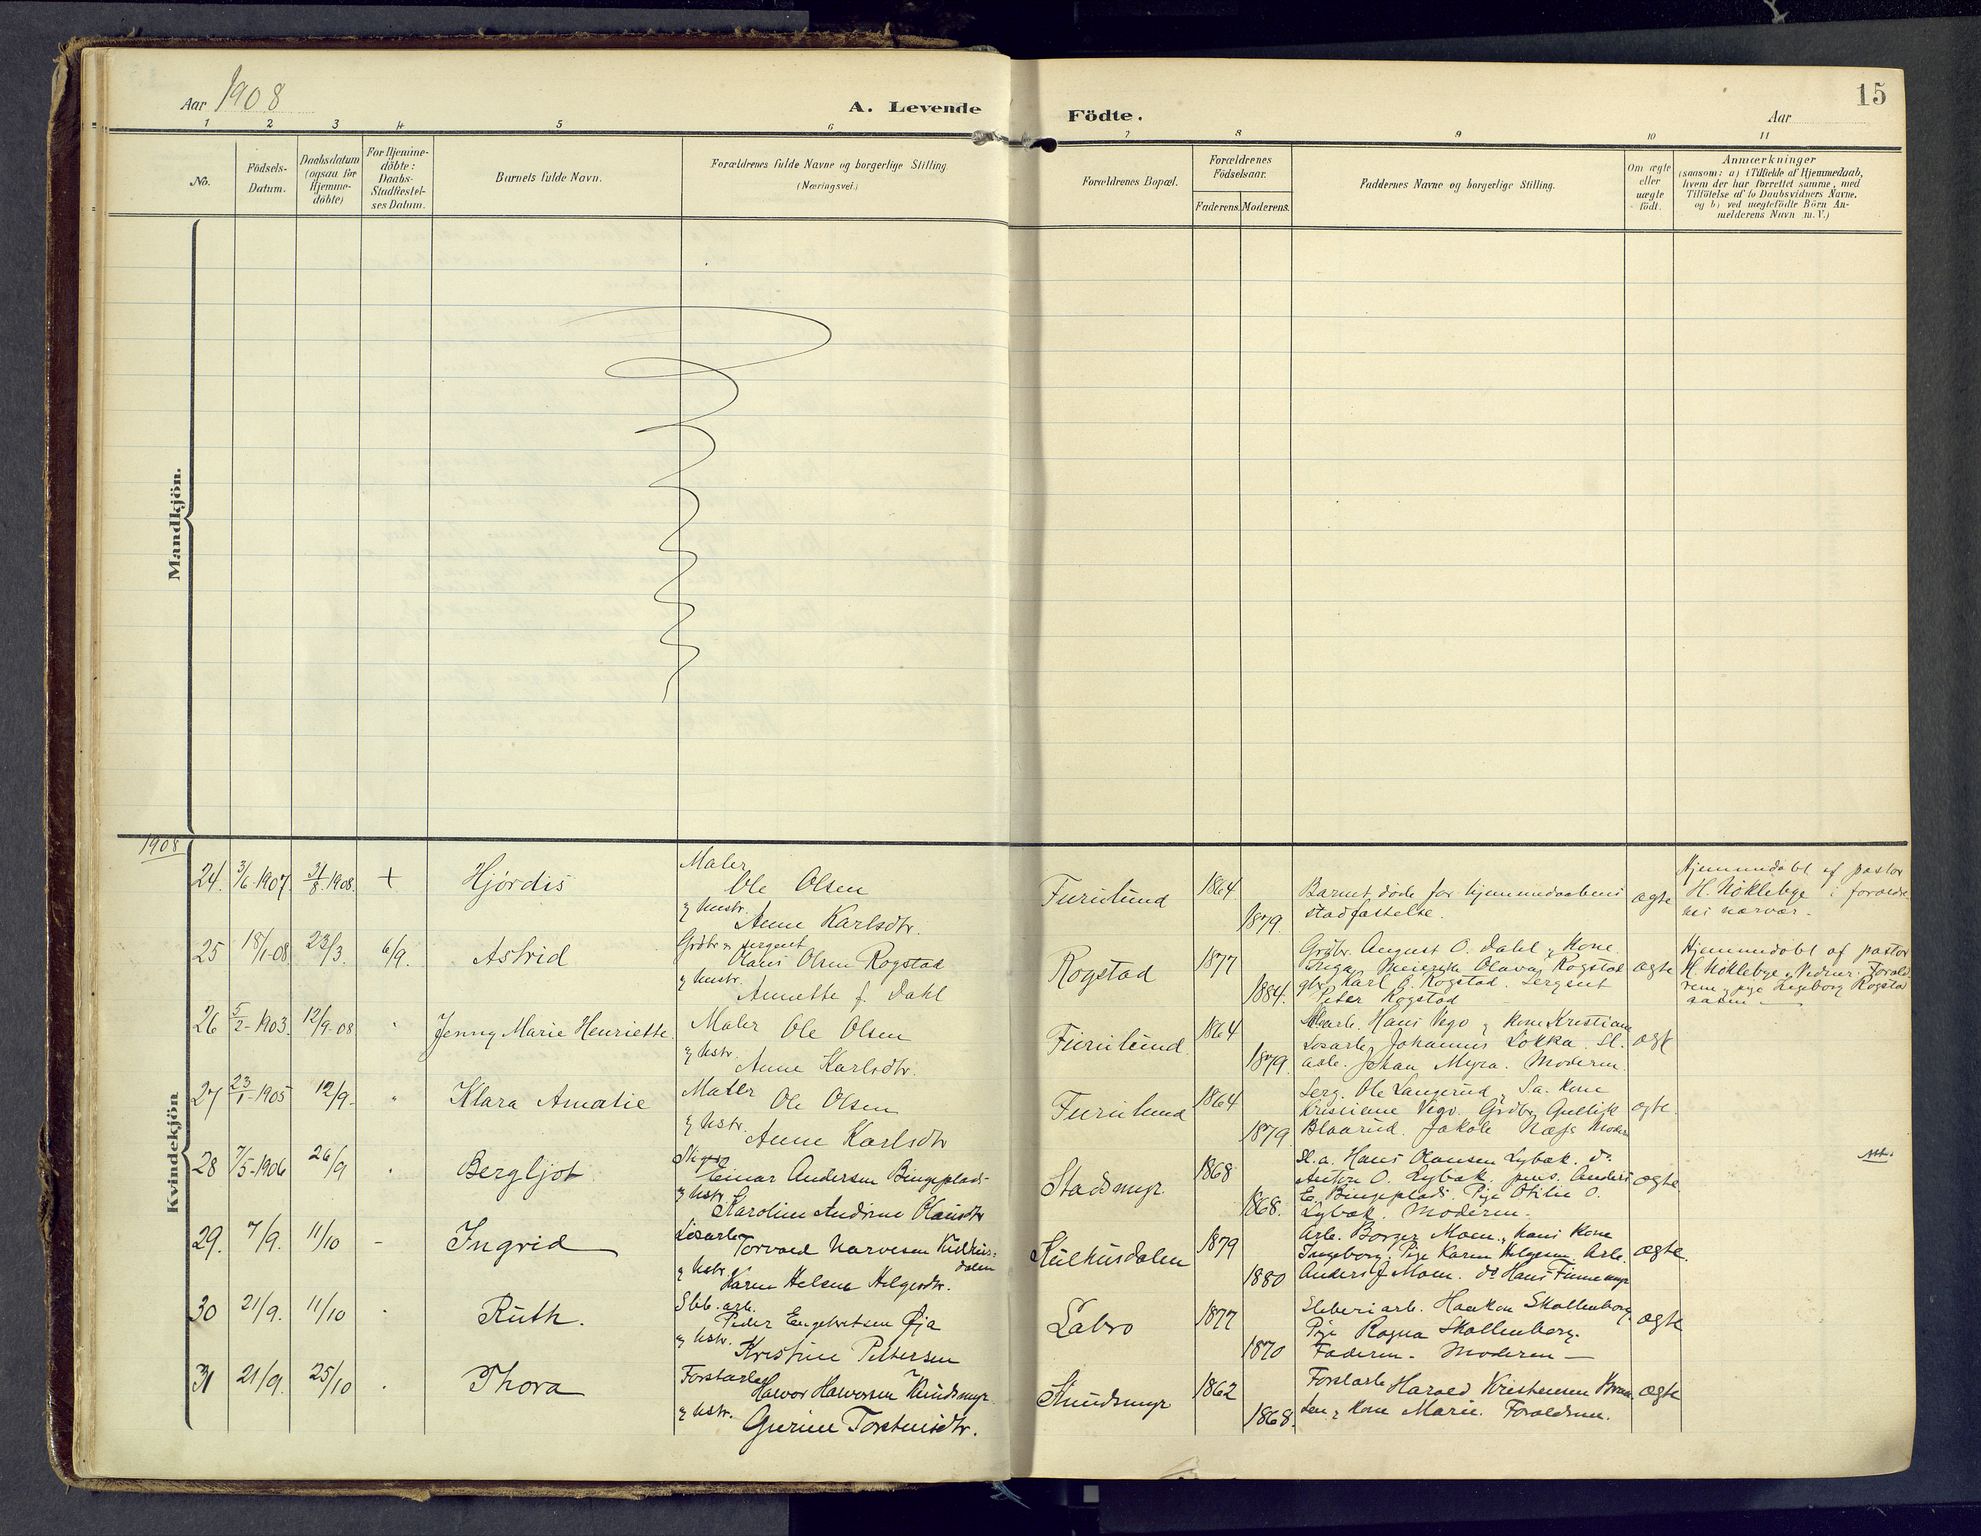 Aar 1908
A. Levende
Födte.
Aar
15
1 2 3 4 5 6 7 8 9 10 11
No.
Födsels-
Datum.
Daabsdatum
(ogsaa for
Hjemme-
döbte)
For Hjemme-
döbte:
Daabs-
Stadfæstel-
ses Datum.
Barnets fulde Navn.
Forældrenes fulde Navne og borgerlige Stilling
(Næringsvei.)
Forældrenes Bopæl.
Forældrenes
Födselsaar.
Faderens. Moderens.
Faddernes Navne og borgerlige Stilling.
Om ægte
eller
uægte
födt.
Anmærkninger
(saasom: a) i Tilfælde af Hjemmedaab,
hvem der har forrettet samme, med
Tilföielse af to Daabsvidners Navne,
og b) ved uægtefödte Börn An-
melderens Navn m. V.)
Mandkjön.
Kvindekjön
1908
24. 3/6-1907. 31/8-1908. + Hjórdis
Maler
Ole Olsen
og hustr.
Anne Karlsdtr.
Furulund 1864 1879.
Barnet døde før hjemmedaabens
stadfæstelse.
ægte
Hjemmedøbt af pastor
H. Nøklebye i forældre
nes nærvær.
25 18/1-08 23/3. 6/9. Astrid
Grdbr. & sergent
Olaus Olsen Rogstad
og hustr.
Annette f. Dahl
Rogstad 1877 1884.
Grdbr. August O. Dahl, kone
Inga, Olava Rogstad
gbr. Karl O. Rogstad. Sergent
Peter Rogstad
ægte
Hjemmedøbt af pastor
H. Nøklebye. Vidner: Foræld
rene, pige Ingeborg Rogsta
26 5/2-1903. 12/9-08 " Jenny Marie Henriette
Maler Ole Olsen
og hstr.
Anne Karlsdtr.
Furulund. 1864 1879.
Hans Vego og kone Kristiane
Løsarb. Johannes Løkka. Sl.
arb. Johan Myra. Moderen.
ægt
27 23/1-1905 12/9. " Klara Amalie
Maler
Ole Olsen
og hstr.
Anne Karlsdtr
Furulund 1864 1879.
Serg. Ole Langerud, S.a. kone
Kristiane Vego. Grdbr. Gullik
Blaarud. Jakob Næss Moder
ægte.
28 7/5-1906 26/9 " Bergljot
Einar Andersen Bingeplads-
og hstr.
Karoline Andrine Olausdtr
Stadsmyr. 1868 1868.
Sl.a. Hans Olausen Lybæk. do
Anton O. Lybæk. pens. Anders
E. Bingeplads. Pige Otilie O.
Lybæk. Moderen.
ægte
29. 7/9. 11/10 - Ingrid
Løsarb.
Torvald Narvesen Kulhus-
dalen
og hstr.
Karen Helene Helgesdtr.
Kulhusdalen 1879 1880
Arb. Borger Moen, hans kone
Ingeborg. Pige Karen Helgesen Arb.
Anders J Moen. do Hans Finnemyr
ægte.
30 21/9. 11/10 " Ruth.
Slib. arb.
Peder Engebretsen Øja
og hstr.
Kristine Pettersen
Labro 1877 1870
Sliberiarb. Haakon Skollenborg.
Pige Ragna Skollenborg.
Faderen. Moderen
ægte
31 21/9. 25/10 . Thora
Forstarb.
Halvor Halvorsen Knudsmyr.
og hstr.
Gurine Torstensdtr.
Knudsmyr 1862 1868.
Forstarb Harald Kristensen
og kone Marie. Forældrene.
ægte